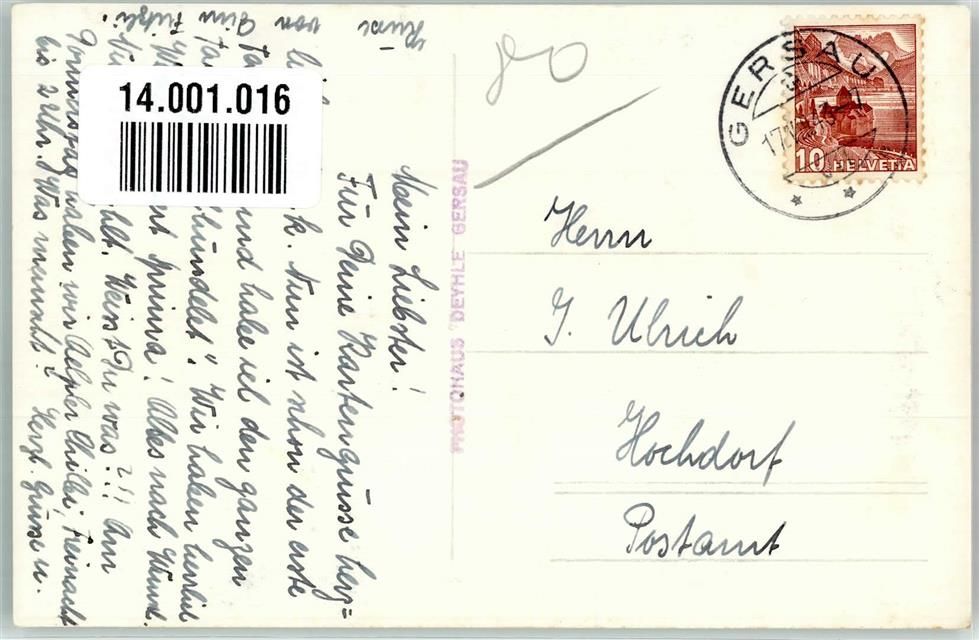 Mein Liebster!
Für Deine Kartengrüsse herz=
k. Nun ist schon der erste
und habe ich den ganzen
bündelet". Wir haben herrlich
prima! Alles nach Wunsch.
Weisst Du was?!! Am
Donnerstag haben wir Aelpler Chilbi, Freinacht
bis 2 Uhr. Was meinst? Herzl. Grüsse u.
Küsse
von Dim Fritzli.
14.001.016
PHOTOHAUS DEYHLE GERSAU
GERSAU
10 HELVETIA
Herrn
J. Ulrich
Hochdorf
Postamt